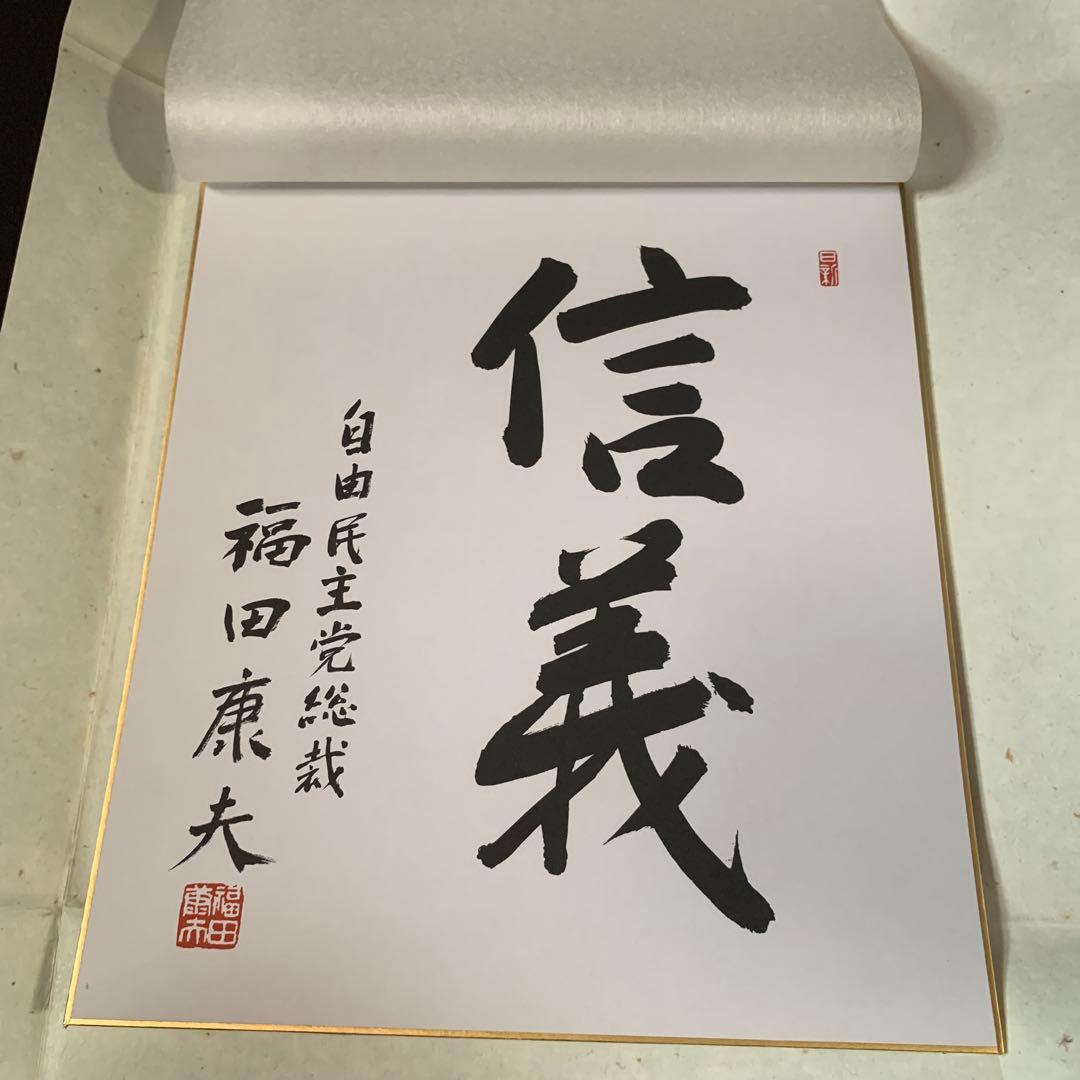 日新
信義
自由民主党総裁
福田康夫
福田
康夫